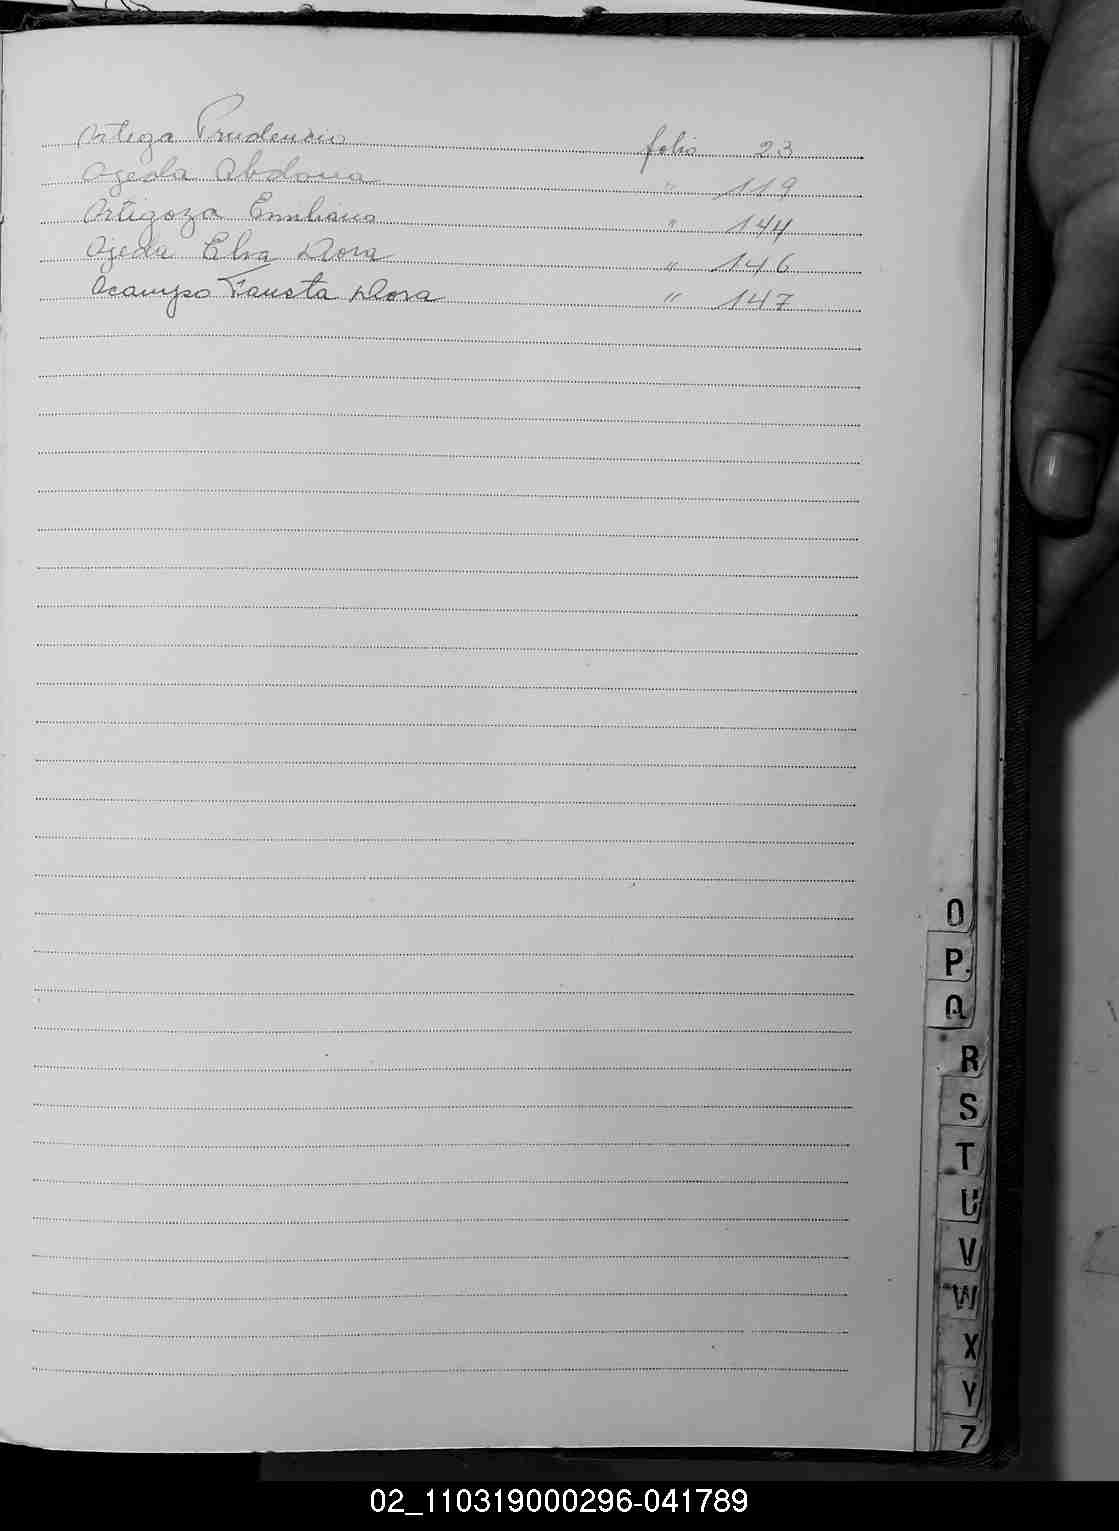 Ortega Prudencio folio 23
Ojeda Abdona " 119
Ortigoza Emiliana " 144
Ojeda Elsa Dora " 146
Ocampo Fausta Dora " 147
O
P
Q
R
S
T
U
V
W
X
Y
Z
02_110319000296-041789